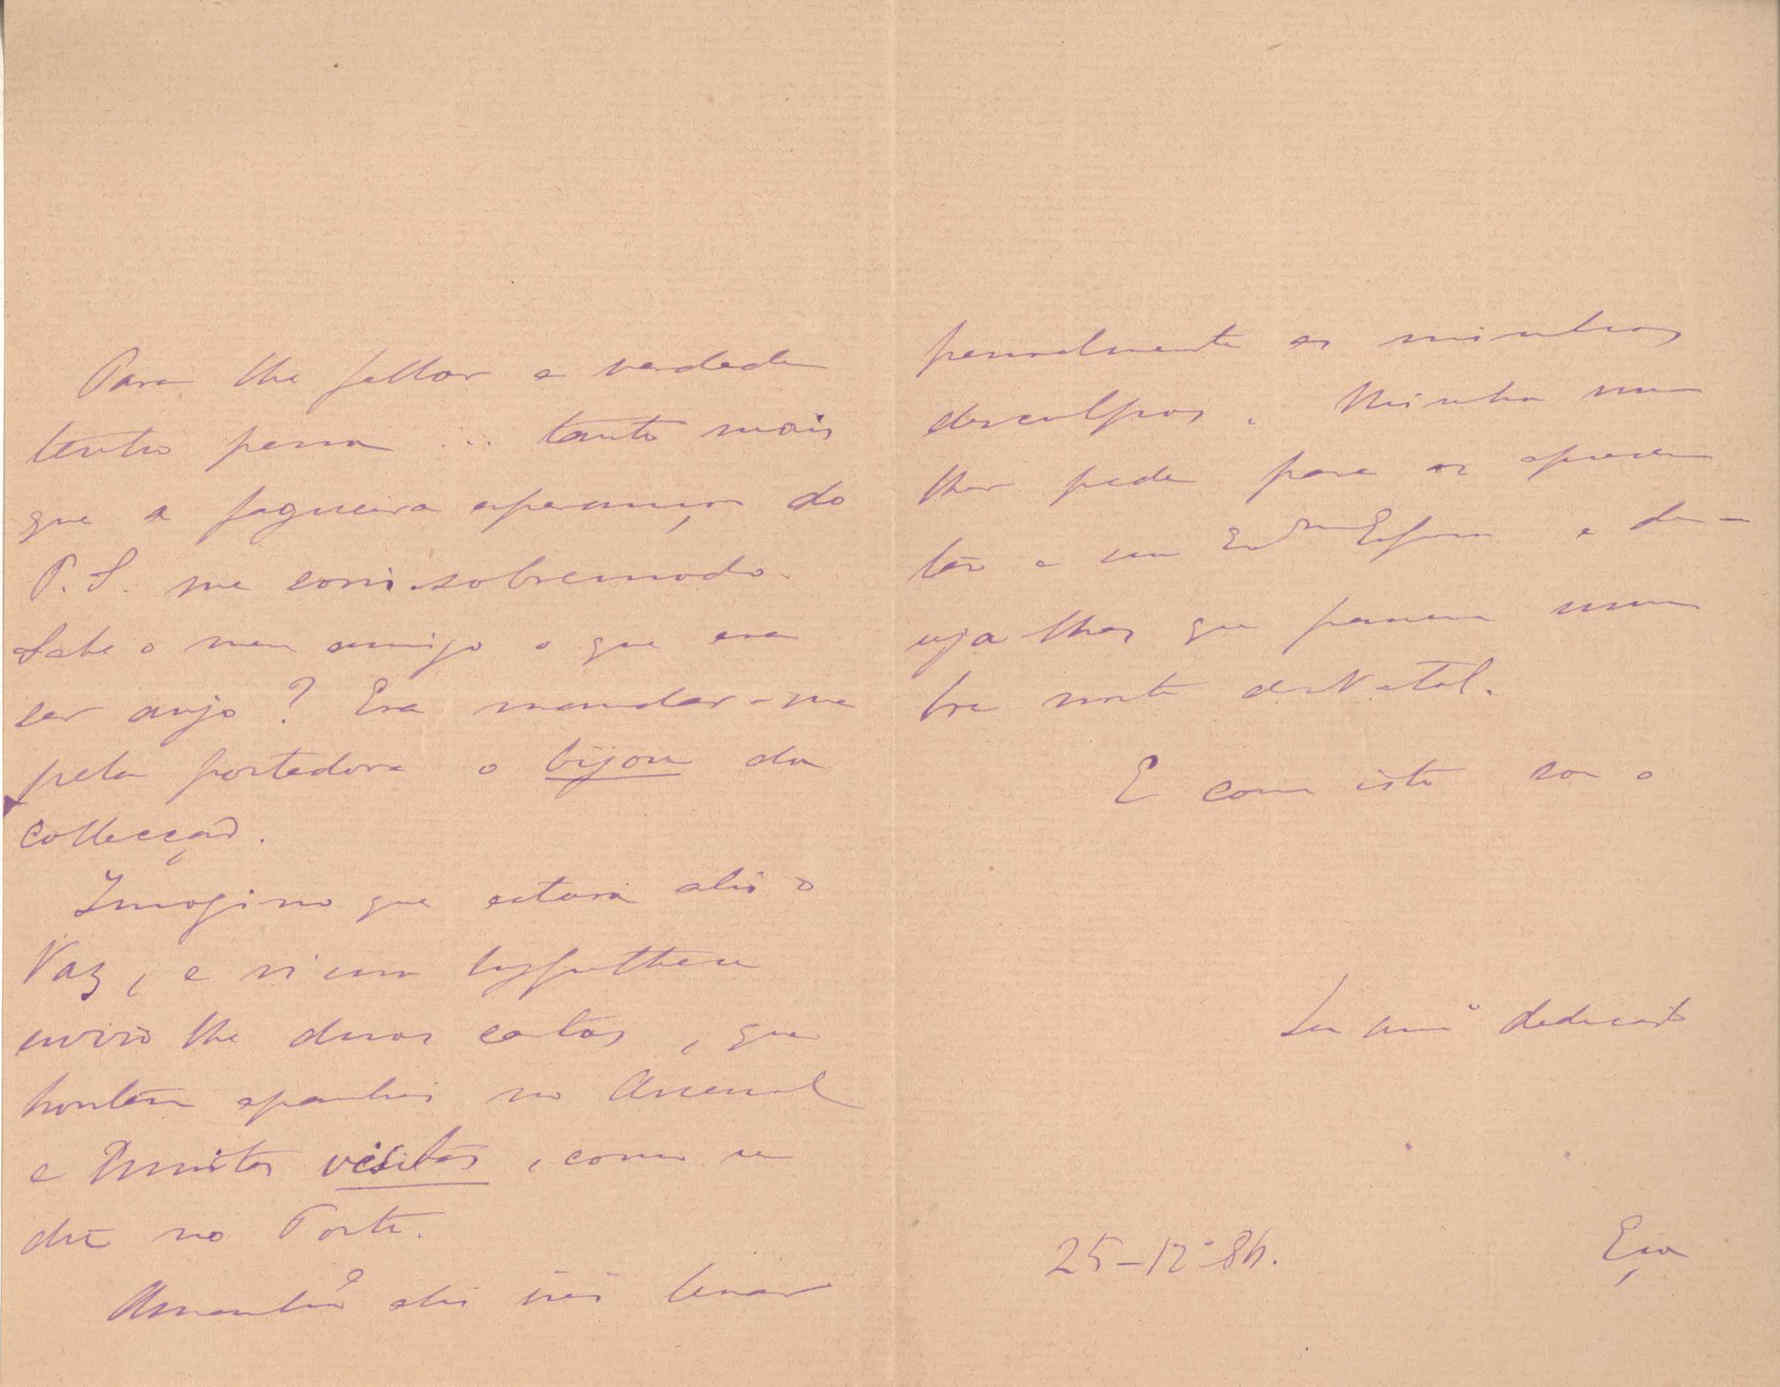 Para lhe fallar a verdade
tenho pena ... tanto mais
que a fagueira esperança do
P.S. me sorri sobremodo.
Sabe o meu amigo o que era
ser anjo? Era mandar-me
pela portadora o bijou da
collecção.
Imagino que estará ahi o
Vaz, e n'essa hypothese
envio lhe duas cartas, que
hontem apanhei no Arsenal
e muitas visitas, como se
diz no Porto.
Amanhã ahi irei levar
pessoalmente as minhas
desculpas. Minha mu
lher pede para as apresen
tar a sua Exma Esposa e de-
seja lhes que passem uma
boa noite de Natal.
E com isto sou o
Seu amo dedicado
25-12-86.
Eça